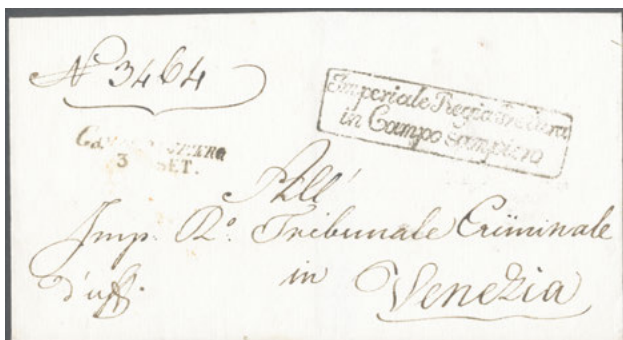 N 3464
Imperiale Regia Pretura
in Campo sampiero
CAMPOSAMPIERO
3 SET.
All'
Imp. R.º Tribunale Criminale
d'uff.
in
Venezia